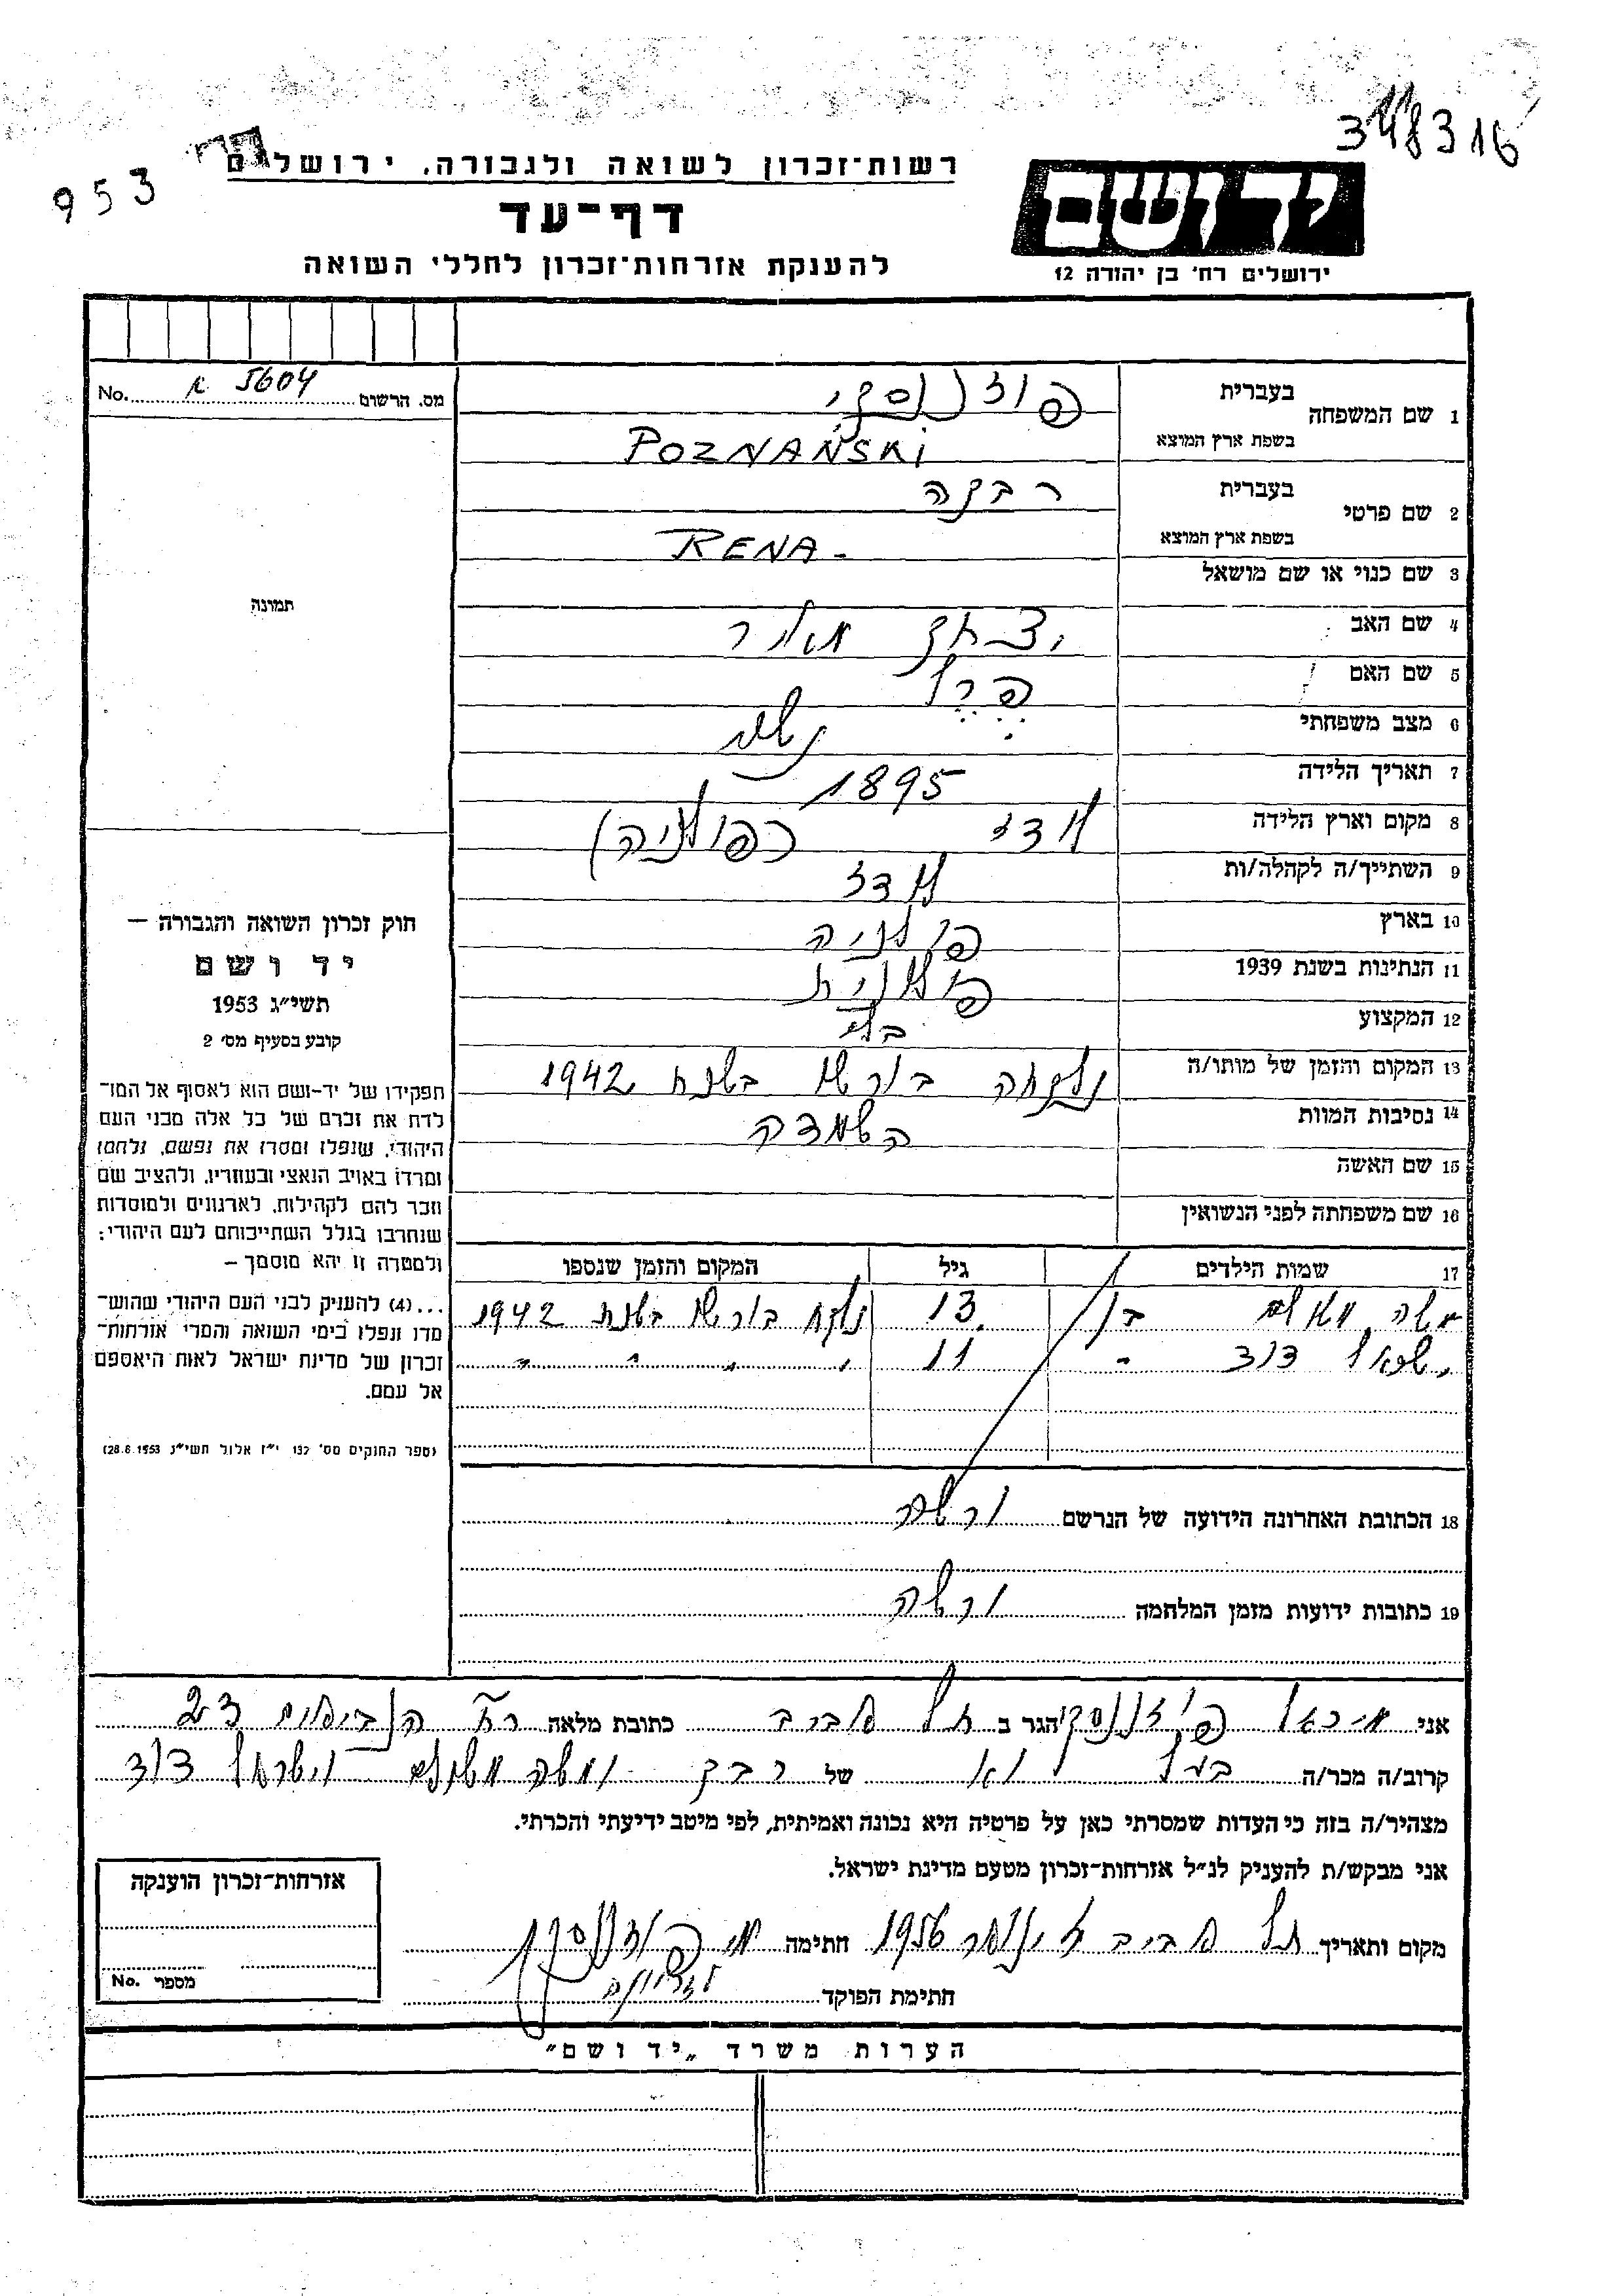 348316
953
רשות־זכרון לשואה ולגבורה, ירושלים
דף־עד
להענקת אזרחות־זכרון לחללי השואה
יד ושם
ירושלים רח' בן יהודה 12
מס. הרשום 5604 א No.
תמונה
1 שם המשפחה בעברית פוזננסקי
בשפת ארץ המוצא POZNAŃSKI
2 שם פרטי בעברית רבקה
בשפת ארץ המוצא RENA-
3 שם כנוי או שם מושאל
4 שם האב יצחק מאיר
5 שם האם פרל
6 מצב משפחתי
7 תאריך הלידה 1895
8 מקום וארץ הלידה לודז (פולניה)
9 השתייך/ה לקהלה/ות לודז
10 בארץ פולניה
11 הנתינות בשנת 1939 פולנית
12 המקצוע
13 המקום והזמן של מותו/ה נלקחה בורשה בשנת 1942
14 נסיבות המוות השמדה
15 שם האשה
16 שם משפחתה לפני הנשואין
17 שמות הילדים גיל המקום והזמן שנספו
משה בן 13 נלקח בורשה בשנת 1942
דוד " 11 " " " "
18 הכתובת האחרונה הידועה של הנרשם ורשה
19 כתובות ידועות מזמן המלחמה ורשה
חוק זכרון השואה והגבורה –
יד ושם
תשי"ג 1953
קובע בסעיף מס' 2
תפקידו של יד-ושם הוא לאסוף אל המו־
לדת את זכרם של כל אלה מבני העם
היהודי, שנפלו ומסרו את נפשם, נלחמו
ומרדו באויב הנאצי ובעוזריו, ולהציב שם
וזכר להם לקהילות, לארגונים ולמוסדות
שנחרבו בגלל השתייכותם לעם היהודי;
ולמטרה זו יהא מוסמך –
...(4) להעניק לבני העם היהודי שהוש־
מדו ונפלו בימי השואה והמרי אזרחות־
זכרון של מדינת ישראל לאות היאספם
אל עמם.
(ספר החוקים מס' 132 י"ז אלול תשי"ג 28.8.1953)
אני מיכאל פוזננסקי הגר ב תל אביב כתובת מלאה רח' הנביאים 23
קרוב/ה מכר/ה בעל ואב של רבקה ומשה דוד
מצהיר/ה בזה כי העדות שמסרתי כאן על פרטיה היא נכונה ואמיתית, לפי מיטב ידיעתי והכרתי.
אני מבקש/ת להעניק לנ"ל אזרחות־זכרון מטעם מדינת ישראל.
מקום ותאריך תל אביב 1956 חתימה מ. פוזננסקי
חתימת הפוקד
אזרחות־זכרון הוענקה
מספר No.
הערות משרד „יד ושם"